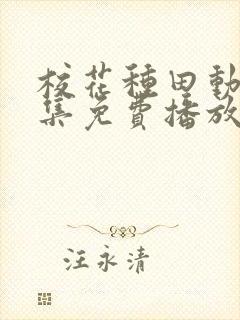 校花種田動
集免費播放
汪永清